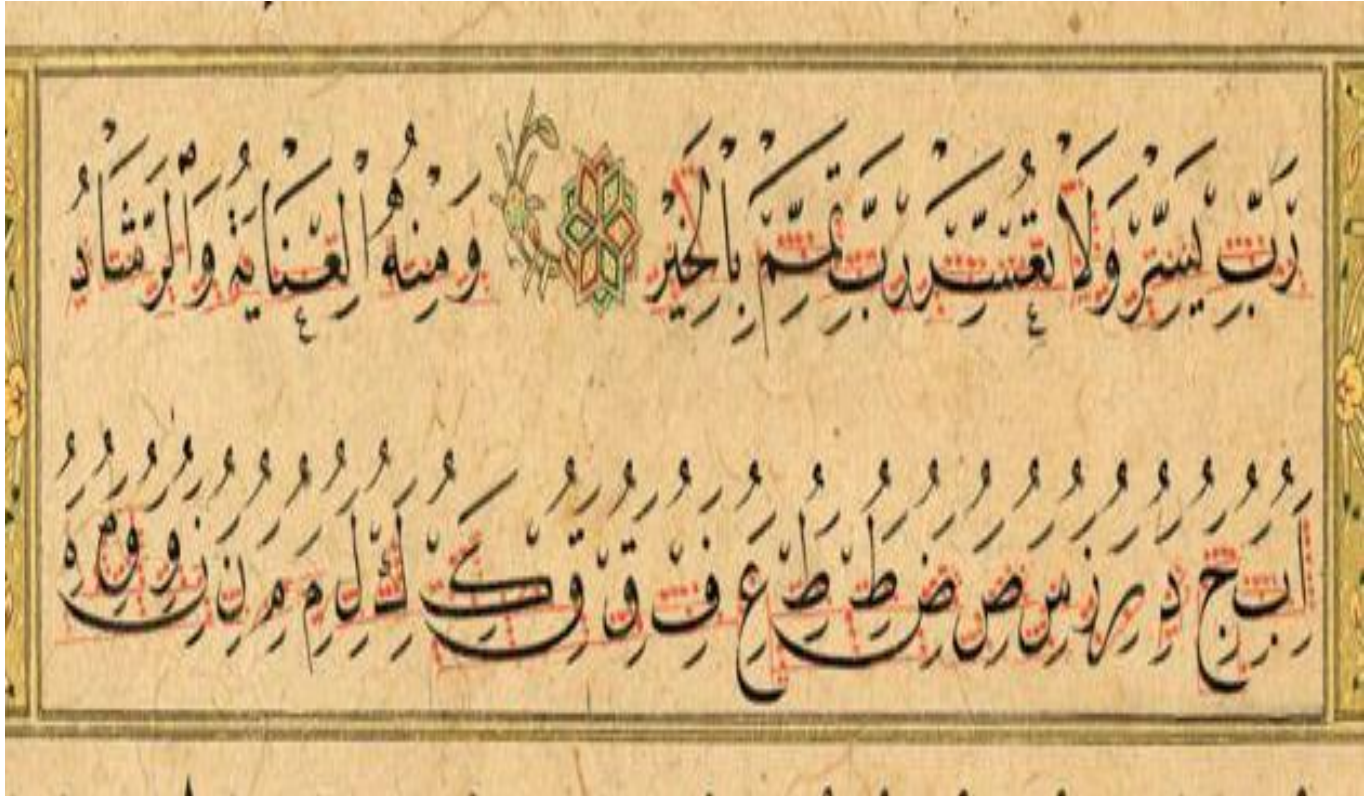 رَبِّ يَسِّرْ وَلَا تُعَسِّرْ رَبِّ تَمِّمْ بِالْخَيْرِ وَمِنْهُ الْعِنَايَةُ وَالرَّشَادُ
ا ب ج د ر ز س ض ض ط ط ع ف ق ق ك ك ل م م ن ن و و م ه